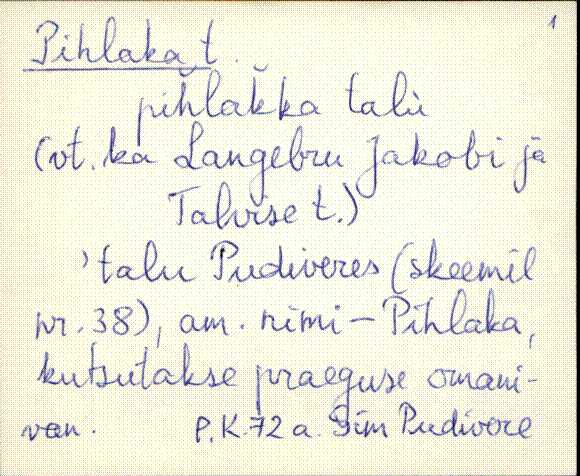 1
Pihlaka t.
pihlakka talu
(vt. ka Langebru Jakobi ja
Talvise t.)
'talu Pudiveres (skeemil
nr. 38), am. nimi – Pihlaka,
kutsutakse praeguse omani-
van. P.K. 72 a. Sim Pudivere